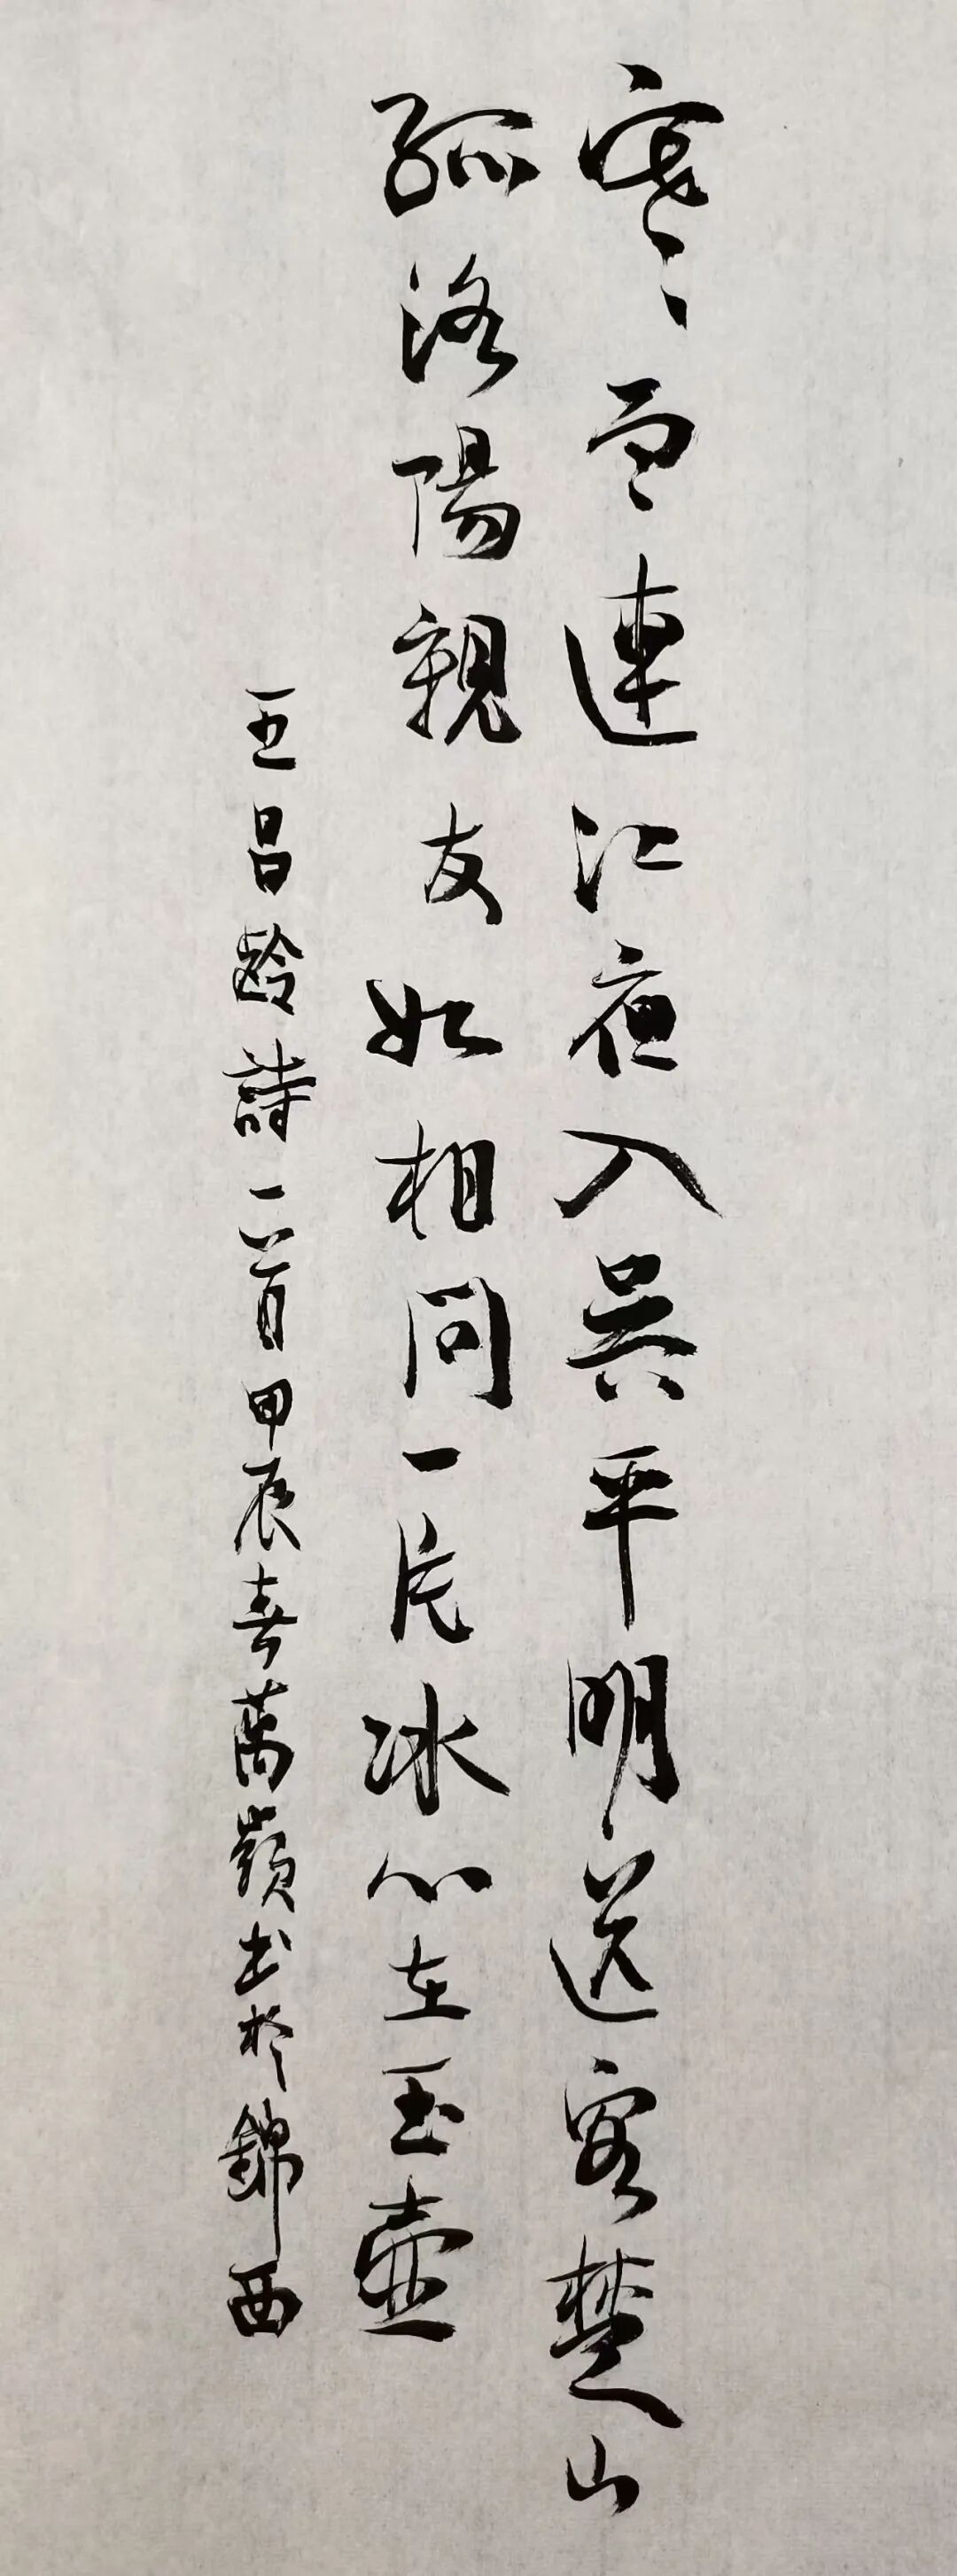 寒雨連江夜入吴平明送客楚山
孤洛陽親友如相問一片冰心在玉壺
王昌龄詩一首甲辰春萬嶺书於錦西